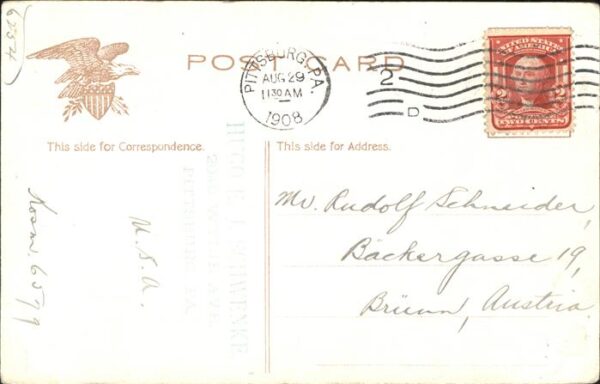 6254
POST CARD
PITTSBURG, PA.
AUG 29
11 30 AM
1908
2
D
UNITED STATES
OF AMERICA
2 2
TWO CENTS
This side for Correspondence.
This side for Address.
Mr. Rudolf Schneider,
Bäckergasse 19,
Brünn, Austria.
U. S. A.
HUGO E. J. SCHWENKE
PITTSBURG, PA.